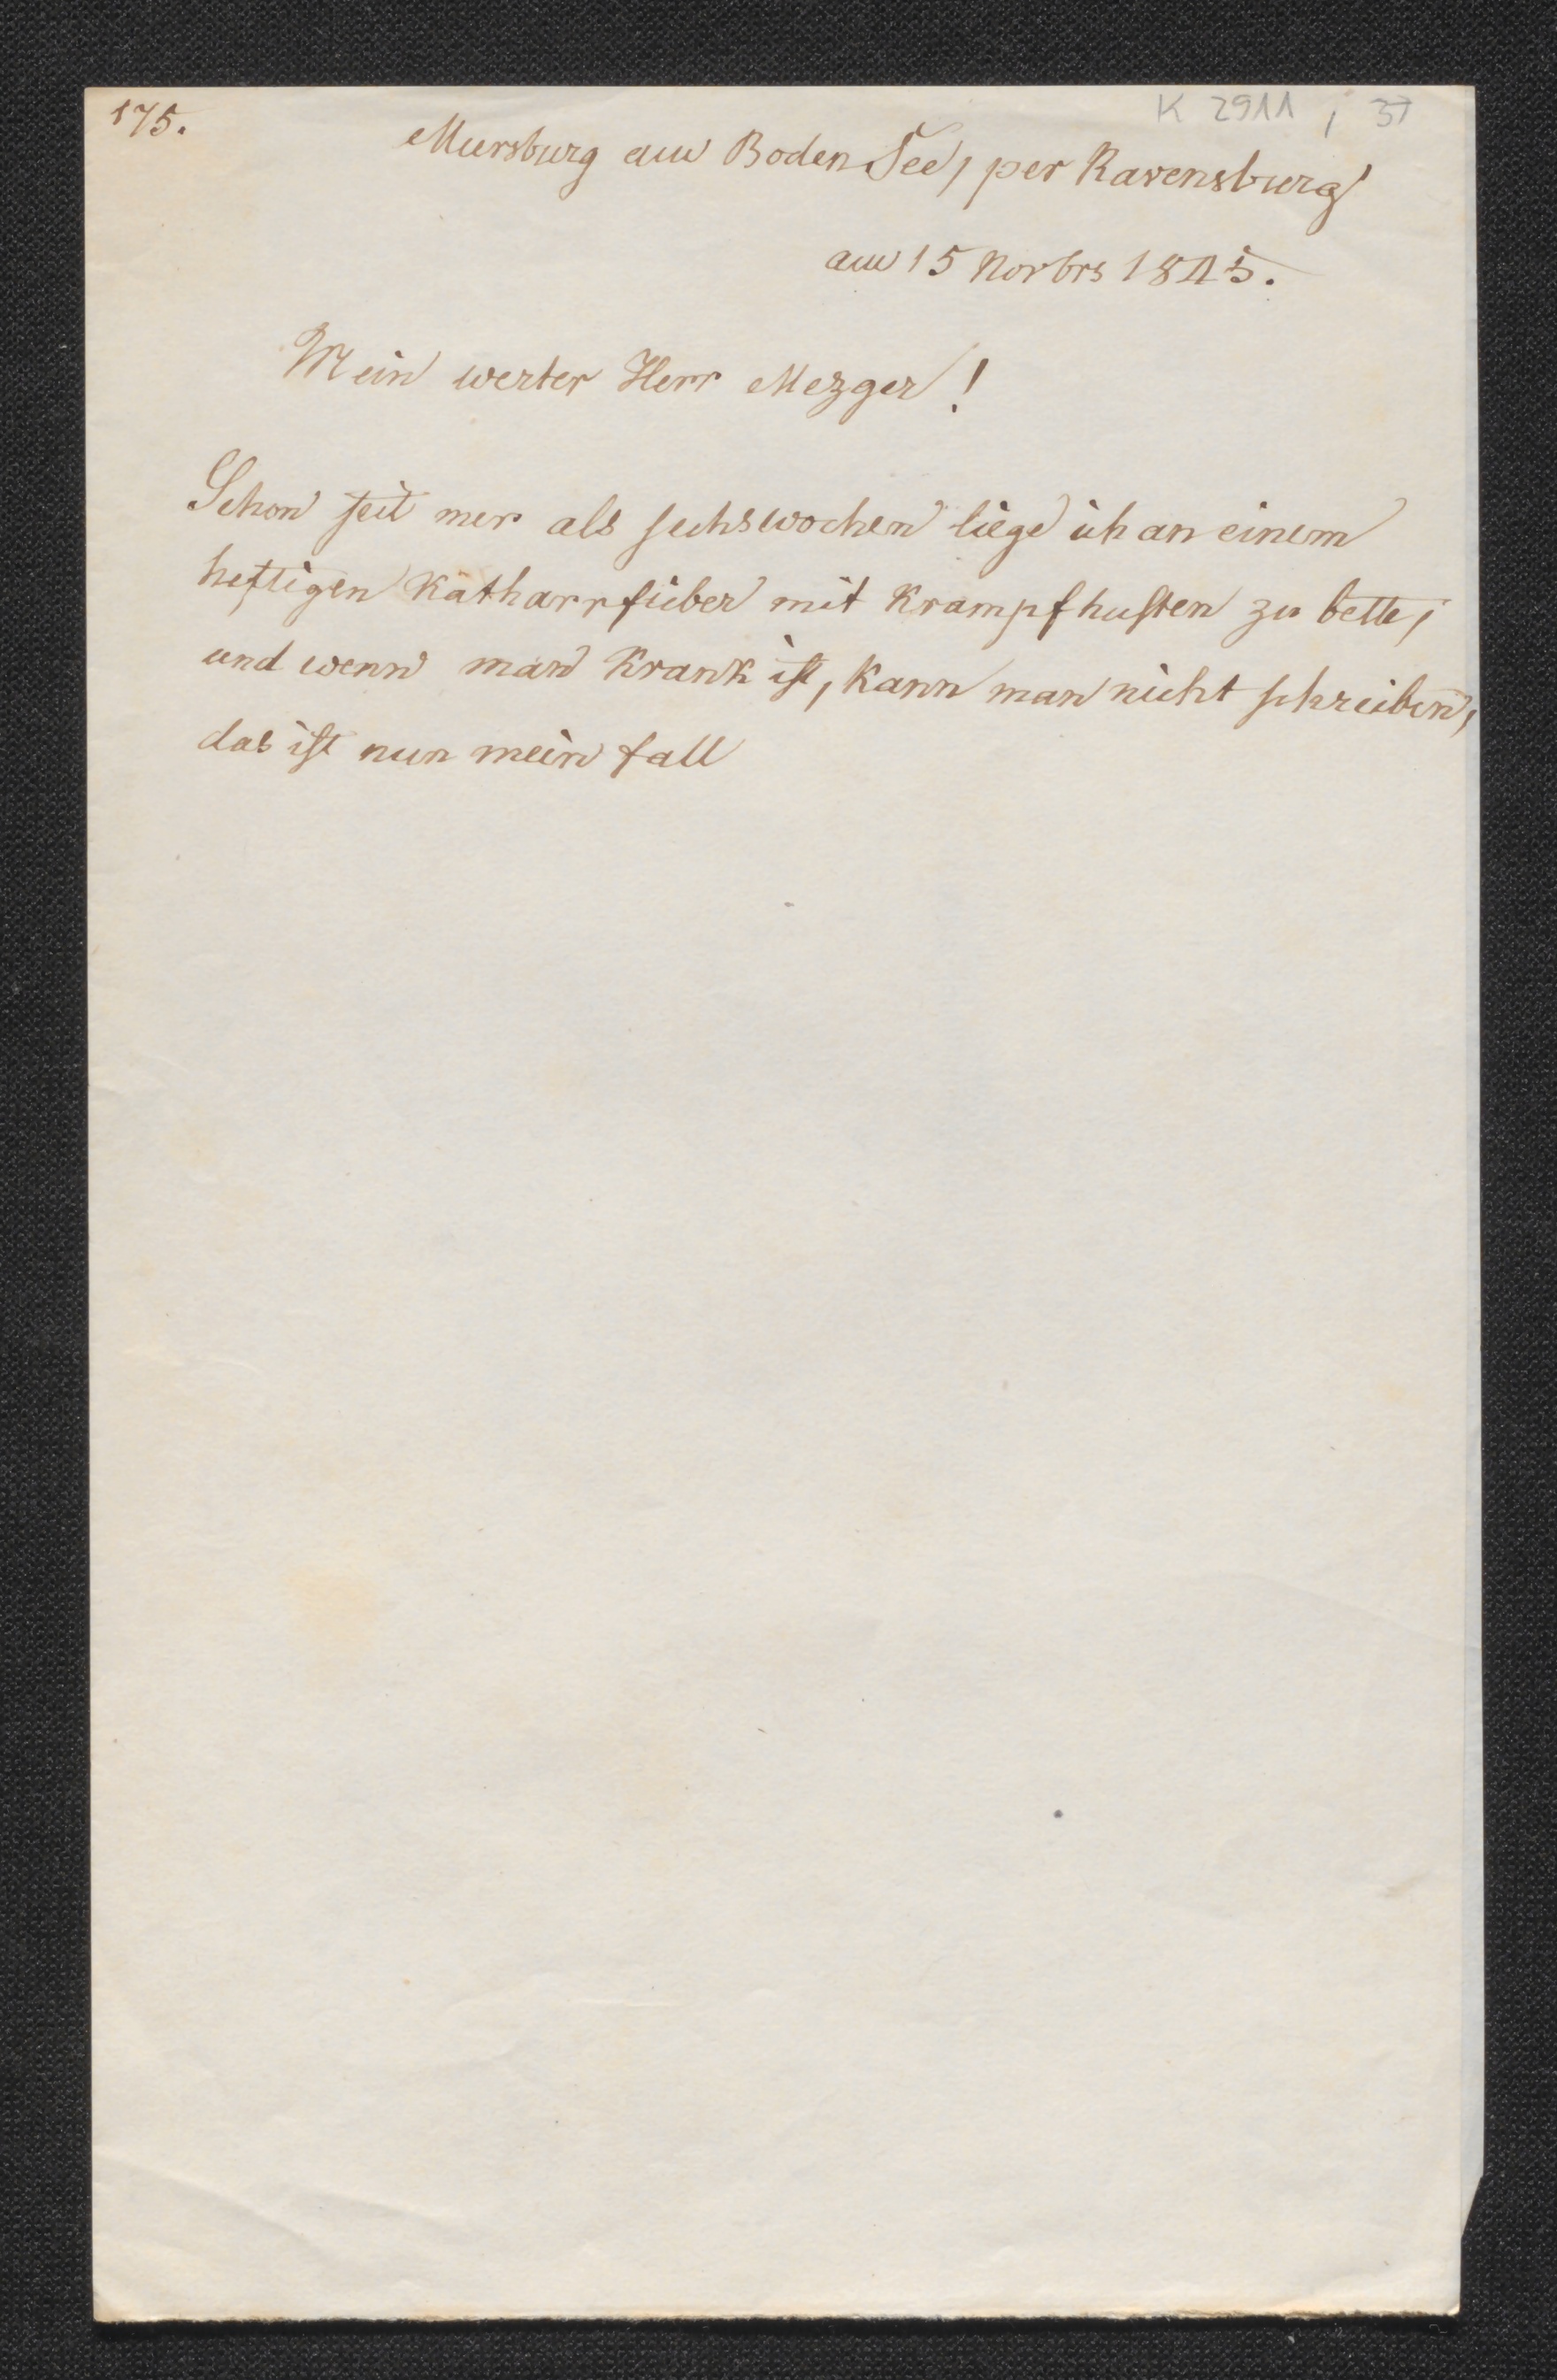 175.
K 2911, 37
Mersburg am Boden See, per Ravensburg
am 15 Novbrs 1845.
Mein werter Herr Mezger!
Schon seit mer als sechswochen liege ich an einem
heftigen Katharrfieber mit Krampfhusten zu bette,
und wenn man Krank ist, kann man nicht schreiben,
das ist nun mein fall